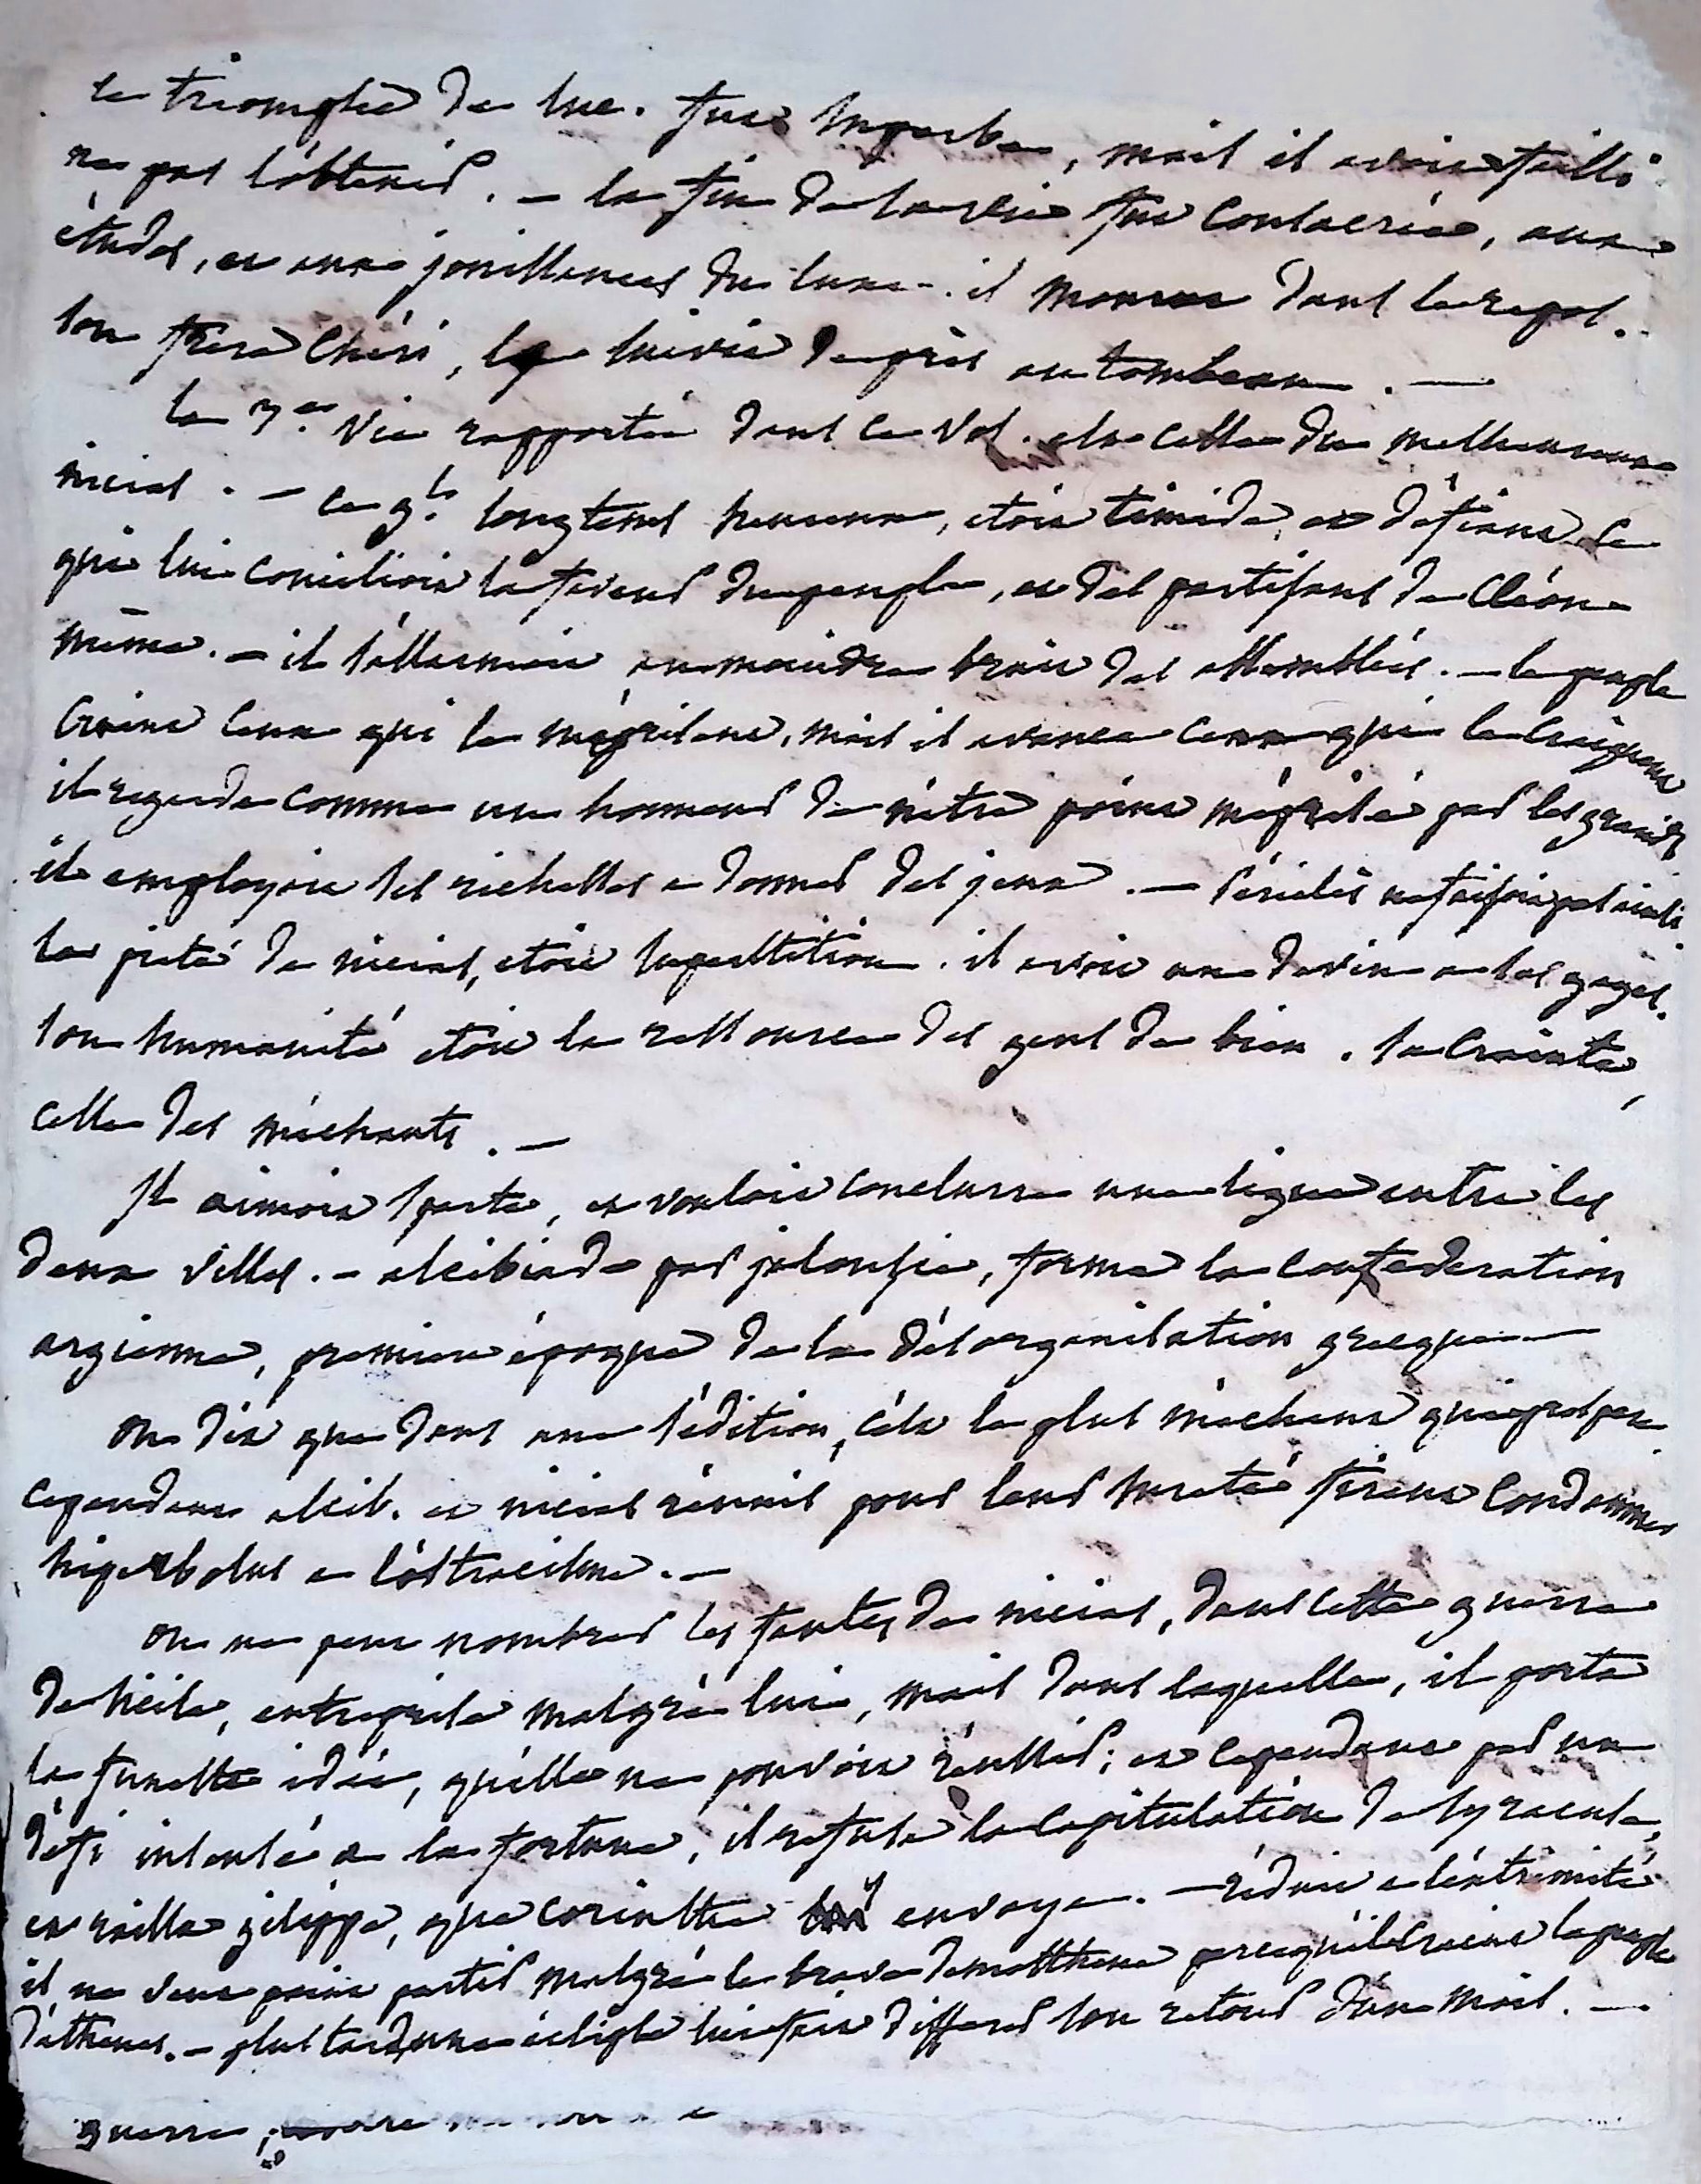 le triomphe de luc. fut superbe, mais il avoit failli
ne pas l'obtenir. — la fin de sa vie fut consacrée, aux
études, et aux jouissances du luxe. - il mourut dans le repos.
son frère chéri, le suivit de près au tombeau. —
la 3.e vie rapportée dans ce vol. est celle du malheureux
nicias. — ce g.l longtems heureux, etoit timide, et défiant ce
qui lui concilioit la faveur du peuple, et des partisans de Cléon
même. — il s'allarmoit au moindre bruit des assemblées. — le peuple
craint ceux qui le méprisent, mais il avance ceux qui le craignent
il regarde comme un honneur de n'être point méprisé par les grands
il employoit ses richesses a donner des jeux. — Périclès ne faisoit pas ainsi.
la piété de nicias, etoit superstition. il avoit un devin a ses gages.
son humanité etoit la ressource des gens de bien. sa crainte,
celle des méchants. —
Il aimoit Sparte, et vouloit conclurre une ligue entre les
deux villes. — alcibiade par jalousie, forma la confederation
argienne, premiere époque de la désorganisation grecque —
on dit que dans une sédition, c'est le plus méchant qui prospere
cependant alcib. et nicias réunis pour leur sureté firent condamner
hiperbolus a l'ostracisme. —
on ne peut nombrer les fautes de nicias, dans cette guerre
de sicile, entreprise malgré lui, mais dans laquelle, il porta
la funeste idée, qu'elle ne pouvoit réussir; et cependant par un
défi insensé a la fortune, il refusa la capitulation de syracuse,
et railla gilippe, que corinthe y envoya. — réduit a l'extrémité
il ne veut point partir malgré le brave demosthene parcequ'il craint le peuple
d'athenes. — plus tard, une éclipse lui fait differer son retour d'un mois. —
guerre,